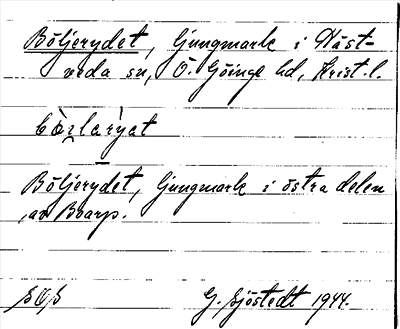 Böljerydet, ljungmark i Näst-
veda sn, Ö. Göinge hd, Krist. l.
Böljerydet, ljungmark i östra delen
av Boarp.
G. Sjöstedt 1944.